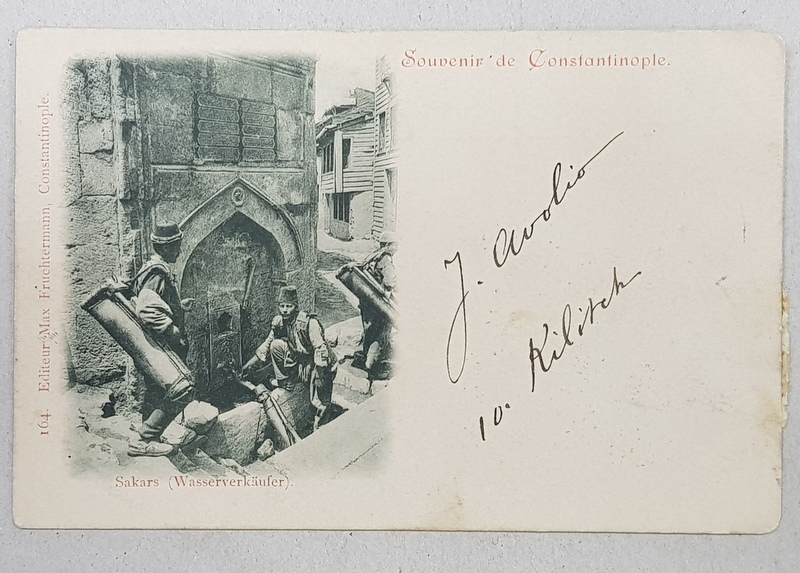 Souvenir de Constantinople.
164. Editeur Max Fruchtermann, Constantinople.
J. Avolio
10. Kilitch
Sakars (Wasserverkäufer).